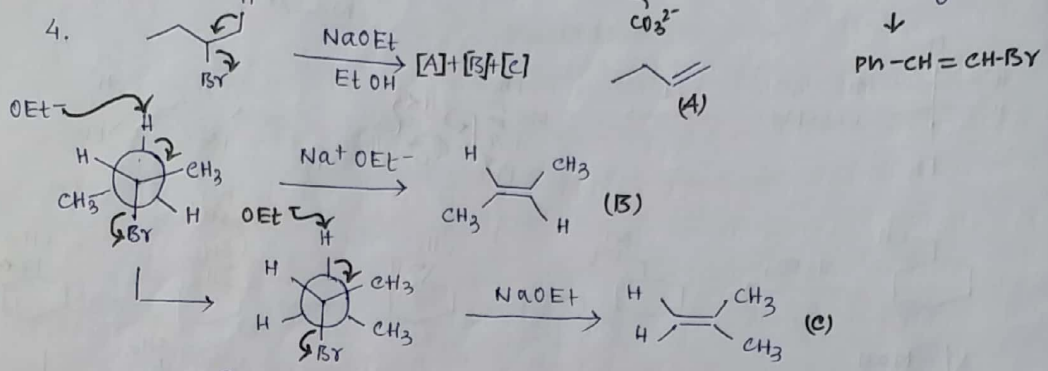 4.
H
Br
NaOEt
EtOH
[A]+[B]+[C]
CO₃²⁻
(A)
↓
Ph-CH=CH-Br
OEt⁻
H
H
CH₃
CH₃
H
Br
Na⁺ OEt⁻
H
CH₃
CH₃
H
(B)
OEt
H
H
CH₃
H
CH₃
Br
NaOEt
H
CH₃
H
CH₃
(C)